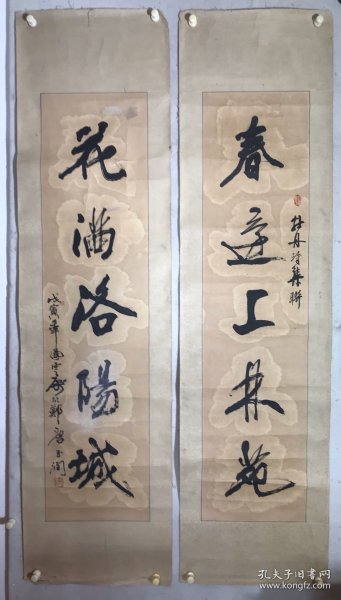 春違上林苑
牡丹诗集聯
花滿洛陽城
戊寅年
孔夫子旧书网
www.kongfz.com